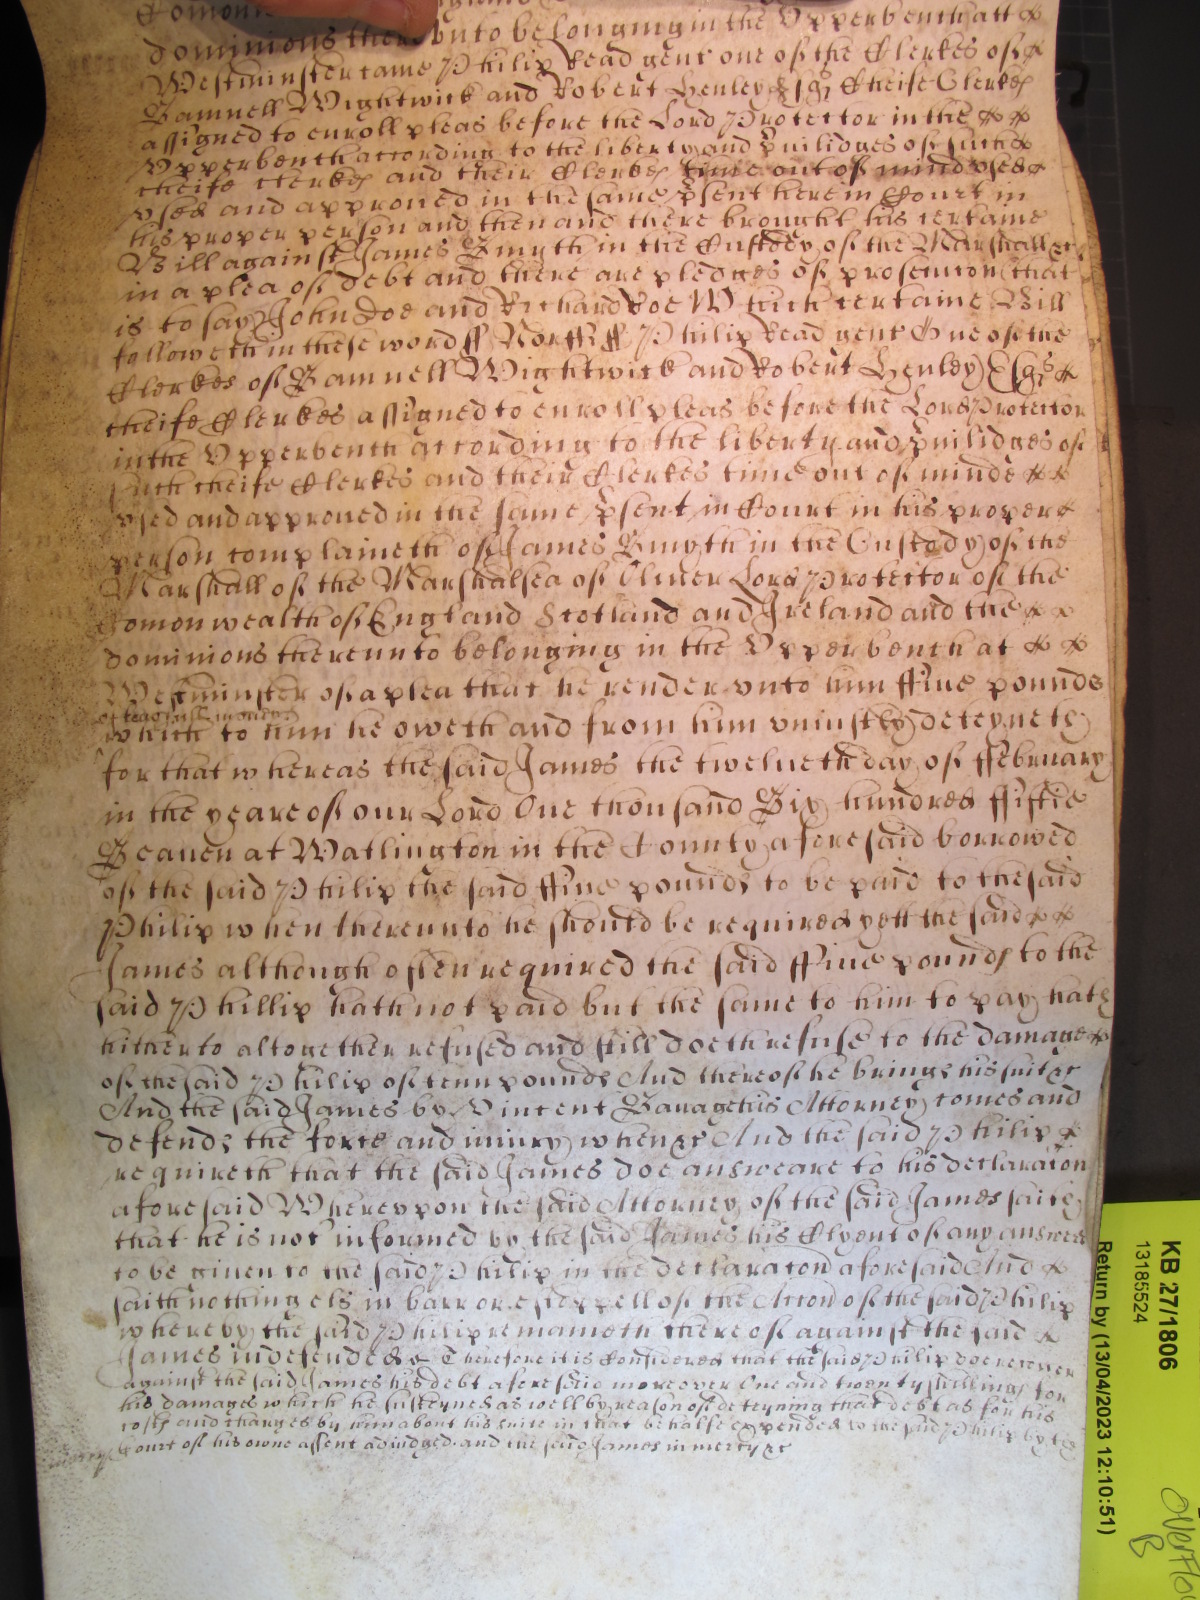 dominions thereunto belonging in the Vpperbench att
Westminster came Philip Read gent one of the Clerkes of
Samuell Wightwick and Robert Henley Esqrs Cheife Clerkes
assigned to enroll pleas before the Lord Protector in the
Vpperbench according to the liberty and priuilidges of such
cheife Clerkes and their Clerkes time out of mind vsed
vsed and approued in the same psent here in Court in
his proper person and then and there brought his certaine
Bill against James Smyth in the Custody of the Marshall &c
in a plea of debt and there are pledges of prosecucion that
is to say John Doe and Richard Roe Which certaine Bill
followeth in these words ss Norff ss Philip Read gent One of the
Clerkes of Samuell Wightwick and Robert Henley Esqrs
cheife Clerkes assigned to enroll pleas before the Lord Protector
in the Vpperbench according to the liberty and priuilidges of
such cheife Clerkes and their Clerkes time out of minde
vsed and approued in the same psent in Court in his proper
person complaineth of James Smyth in the Custody of the
Marshall of the Marshalsea of Oliuer Lord Protector of the
Comonwealth of England Scotland and Ireland and the
dominions thereunto belonging in the Vpperbench at
Westminster of a plea that he render vnto him ffiue pounds
of lawfull money
which to him he oweth and from him vniustly deteyneth
for that whereas the said James the twelueth day of ffebruary
in the yeare of our Lord One thousand Six hundred ffiftie
Seauen at Watlington in the County aforesaid borrowed
of the said Philip the said ffiue pounds to be paid to the said
Philip when thereunto he should be required yett the said
James although often required the said ffiue pounds to the
said Phillip hath not paid but the same to him to pay hath
hitherto altogether refused and still doeth refuse to the damage
of the said Philip of tenn pounds And thereof he brings his suite &c
And the said James by Vincent Sauage his Attorney comes and
defends the force and iniury when &c And the said Philip
requireth that the said James doe answeare to his declaracon
aforesaid Wherevpon the said Attorney of the said James saith
that he is not informed by the said James his Clyent of any answer
to be giuen to the said Philip in the declaracon aforesaid And
saith nothing els in barr or estoppell of the Accon of the said Philip
whereby the said Philip remaineth thereof against the said
James indefended &c Therefore it is Considered that the said Philip doe recouer
against the said James his debt aforesaid moreover One and twenty shillings for
his damages which he susteyned as well by reason of deteyning that debt as for his
costs and charges by him about his suite in that behalfe expended to the said Philip by the
Court of his owne assent adiudged and the said James in mercy &c
KB 27/1806
13185524
Return by (13/04/2023 12:10:51)
Overflow
B